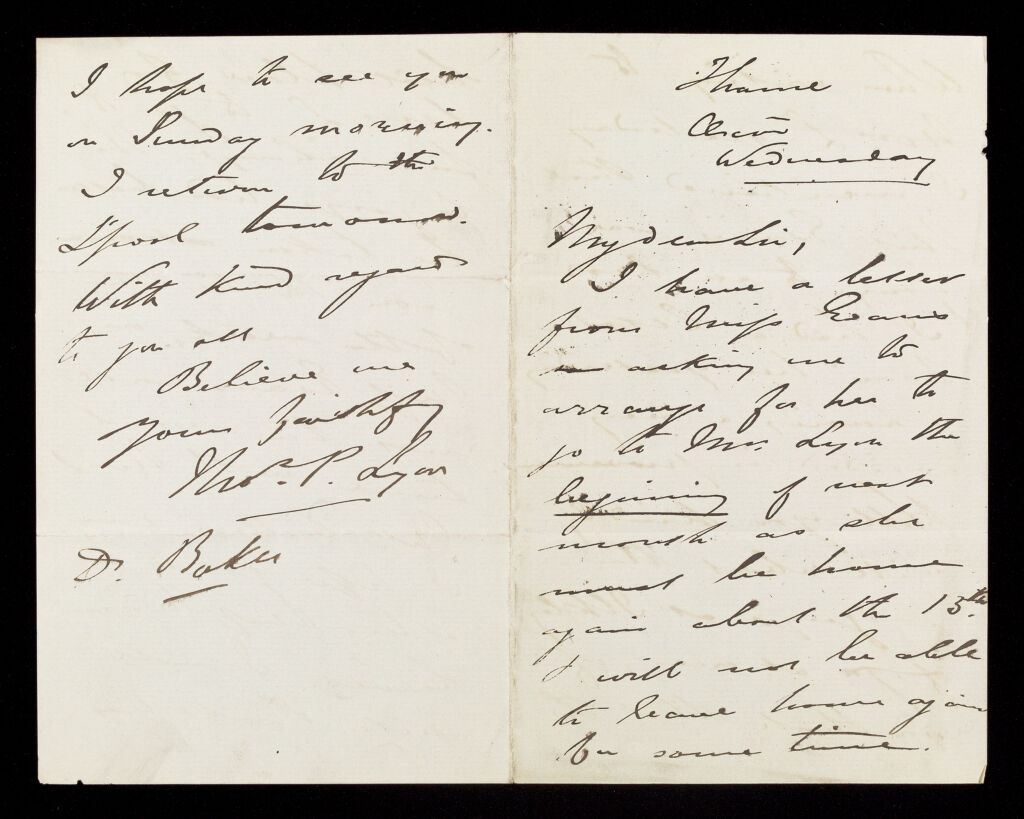 Thame
Oxon
Wednesday
My dear Sir,
I have a letter
from Miss Evans
asking me to
arrange for her to
go to Mrs. Lyon the
beginning of next
month as she
must be home
again about the 15th.
I will not be able
to leave home again
for some time.
I hope to see you
on Sunday morning.
I return to
L'pool tomorrow.
With kind regards
to you all
Believe me
Yours faithfy
Thos. P. Lyon
Dr. Baker